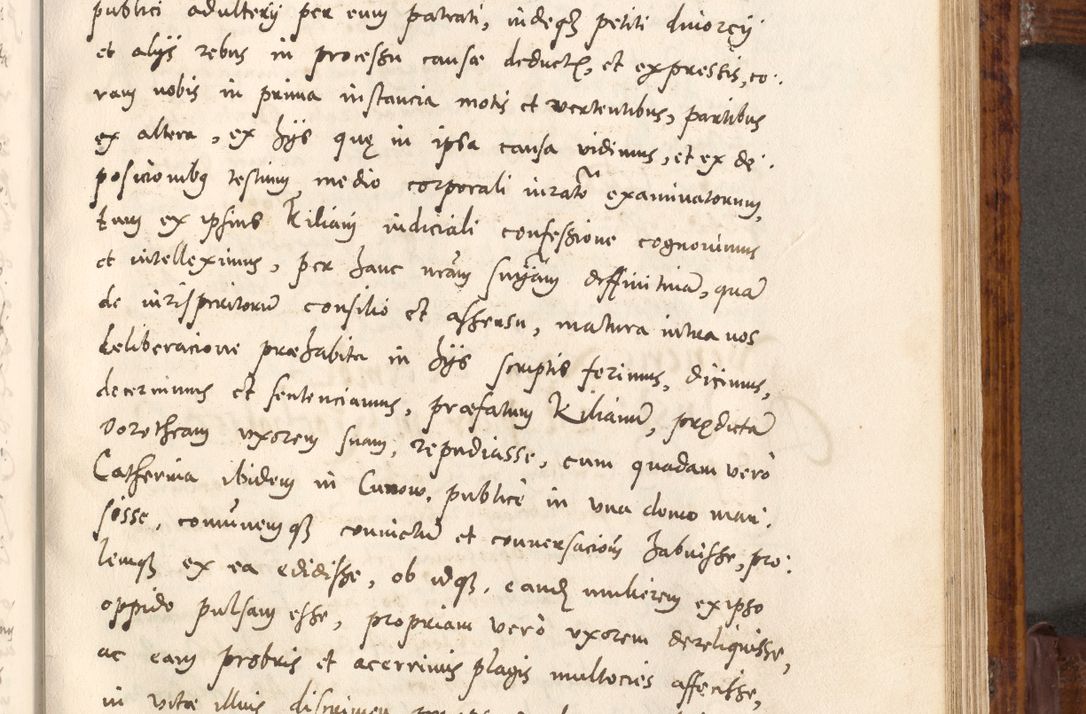 publici adulterij per eum patrati, indeq3 petiti diuorcij
et alijs rebus in processu causæ deduct, et expressis, co:
ram nobis in prima instancia motis et vertentibus, partibus
ex altera, ex hijs quę in ipsa causa vidimus, et ex de:
posicionibq testium, medio corporali iurato examinatorum,
tum ex ipsius Kiliani iudiciali confessione cognouimus
et intelleximus, per hanc nram snÿam diffinitiuã, quã
de iurisperitorum consilio et assensu, matura intra nos
deliberacione præhabita in hijs scriptis ferimus, dicimus,
decernimus et sentenciamus, præfatum Kilianũ, prędictã
Dorotheam vxorem suam, repudiasse, cum quadam verò
Catherina ibidem in Cunow, publicè in vna domo man:
sisse, comũnemq3 conuictũ et conuersacionem habuisse, pro:
lemq3 ex ea edidisse, ob idq3, eand mulierem ex ipso
oppido pulsam esse, propriam verò vxorem dereliquisse,
ac eam probris et acerrimis plagis multocies affecisse,
in vitæ illius discrimen